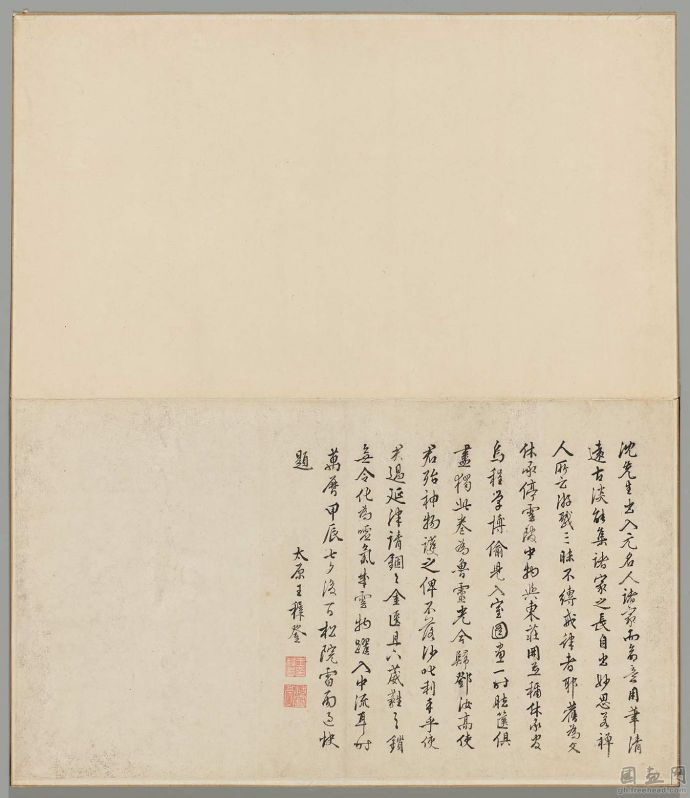 沈先生出入元名人諸家而命意用筆清
遠古淡能集諸家之長自出妙思若禪
人所云游戲三昧不縛戒律者耶舊為文
休承停雲館中物與東莊圖並稱休承官
烏程學博偷兒入室圖畫一時胠篋俱
盡獨此卷為魯靈光今歸鄧汝高使
君殆神物護之俾不落沙吒利手乎使
君過延津請錮之金匱且六葳蕤之鎖
無令化為噓氣成雲物躍入中流耳時
萬曆甲辰七夕後百松院雷雨過快
題
太原王穉登
國畫网
gh.freehead.com